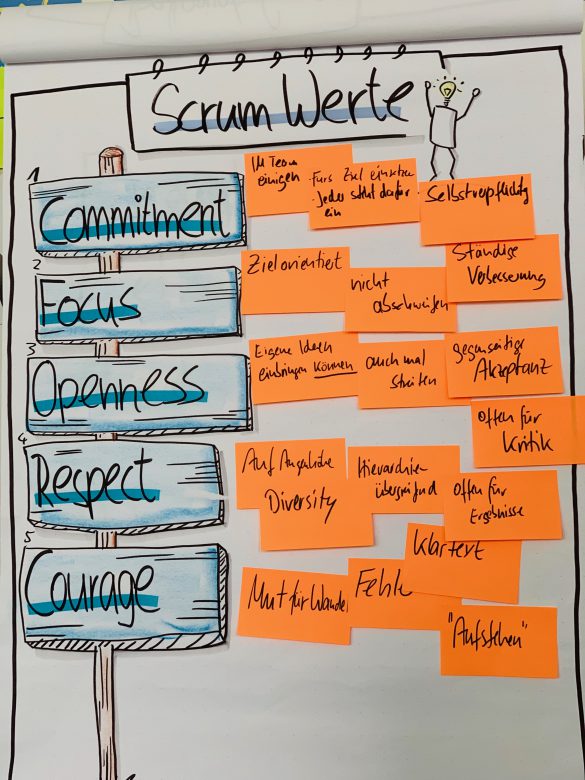 Scrum Werte
1
Commitment
Im Team
einigen
Fürs Ziel einsetzen
Jeder steht dafür
ein
2
Focus
Zielorientiert
nicht
abschweifen
Ständige
Verbesserung
3
Openness
Eigene Ideen
einbringen können
auch mal
streiten
gegenseitige
Akzeptanz
Offen für
Kritik
4
Respect
Auf Augenhöhe
Diversity
Hierarchie
übergreifend
Offen für
Ergebnisse
5
Courage
Mut für Wandel
Fehler
Klartext
"Aufstehen"